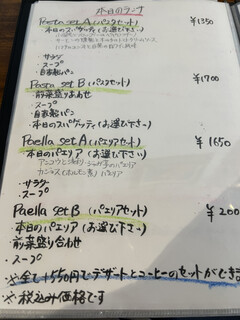 本日のランチ
Pasta set A (パスタセット) ¥1350
本日のスパゲッティ (お選び下さい)
・サラダ
・スープ
・自家製パン
Pasta set B (パスタセット) ¥1700
・前菜盛りあわせ
・スープ
・自家製パン
・本日のスパゲッティ (お選び下さい)
Paella set A (パエリアセット) ¥1650
・本日のパエリア (お選び下さい)
・サラダ
・スープ
Paella set B (パエリアセット) ¥200
・本日のパエリア (お選び下さい)
前菜盛り合わせ
・スープ
※全て+550円でデザートとコーヒーのセットができま
※税込み価格です